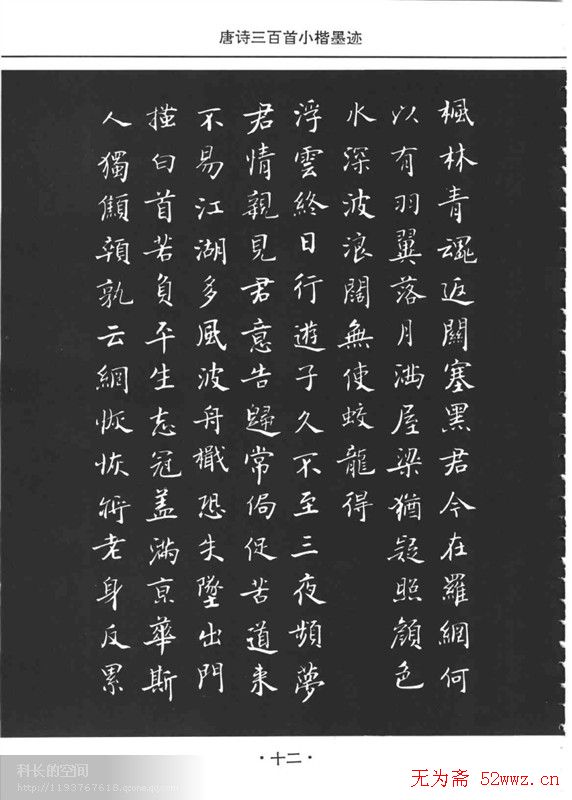 唐诗三百首小楷墨迹
楓林青魂返關塞黑君今在羅網何
以有羽翼落月滿屋梁猶疑照顏色
水深波浪闊無使蛟龍得
浮雲終日行遊子久不至三夜頻夢
君情親見君意告歸常侷促苦道来
不易江湖多風波舟檝恐失墜出門
搔白首若負平生志冠盖滿京華斯
人獨顦顇孰云網恢恢將老身反累
·十二·
科长的空间
http://1193767618.qzone.qq.com
无为斋 52wwz.cn